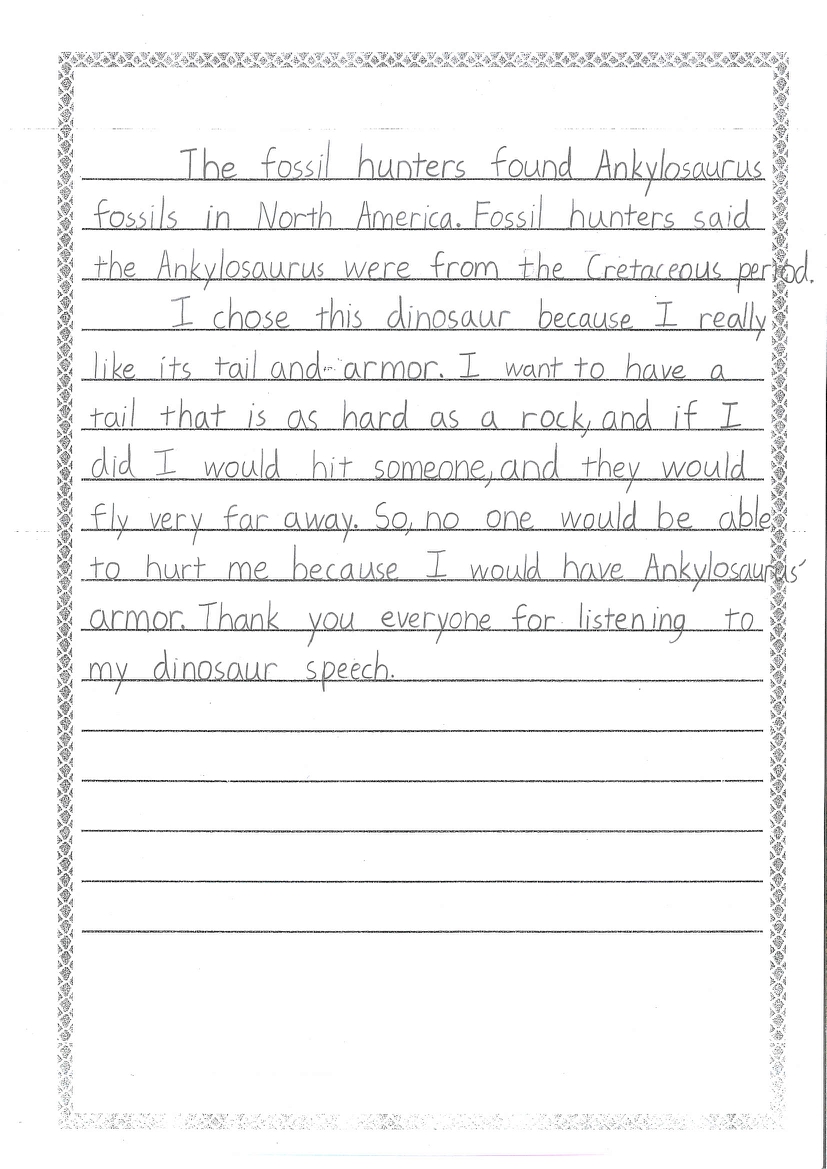 The fossil hunters found Ankylosaurus
fossils in North America. Fossil hunters said
the Ankylosaurus were from the Cretaceous period.
I chose this dinosaur because I really
like its tail and armor. I want to have a
tail that is as hard as a rock, and if I
did I would hit someone, and they would
fly very far away. So, no one would be able
to hurt me because I would have Ankylosaurus'
armor. Thank you everyone for listening to
my dinosaur speech.